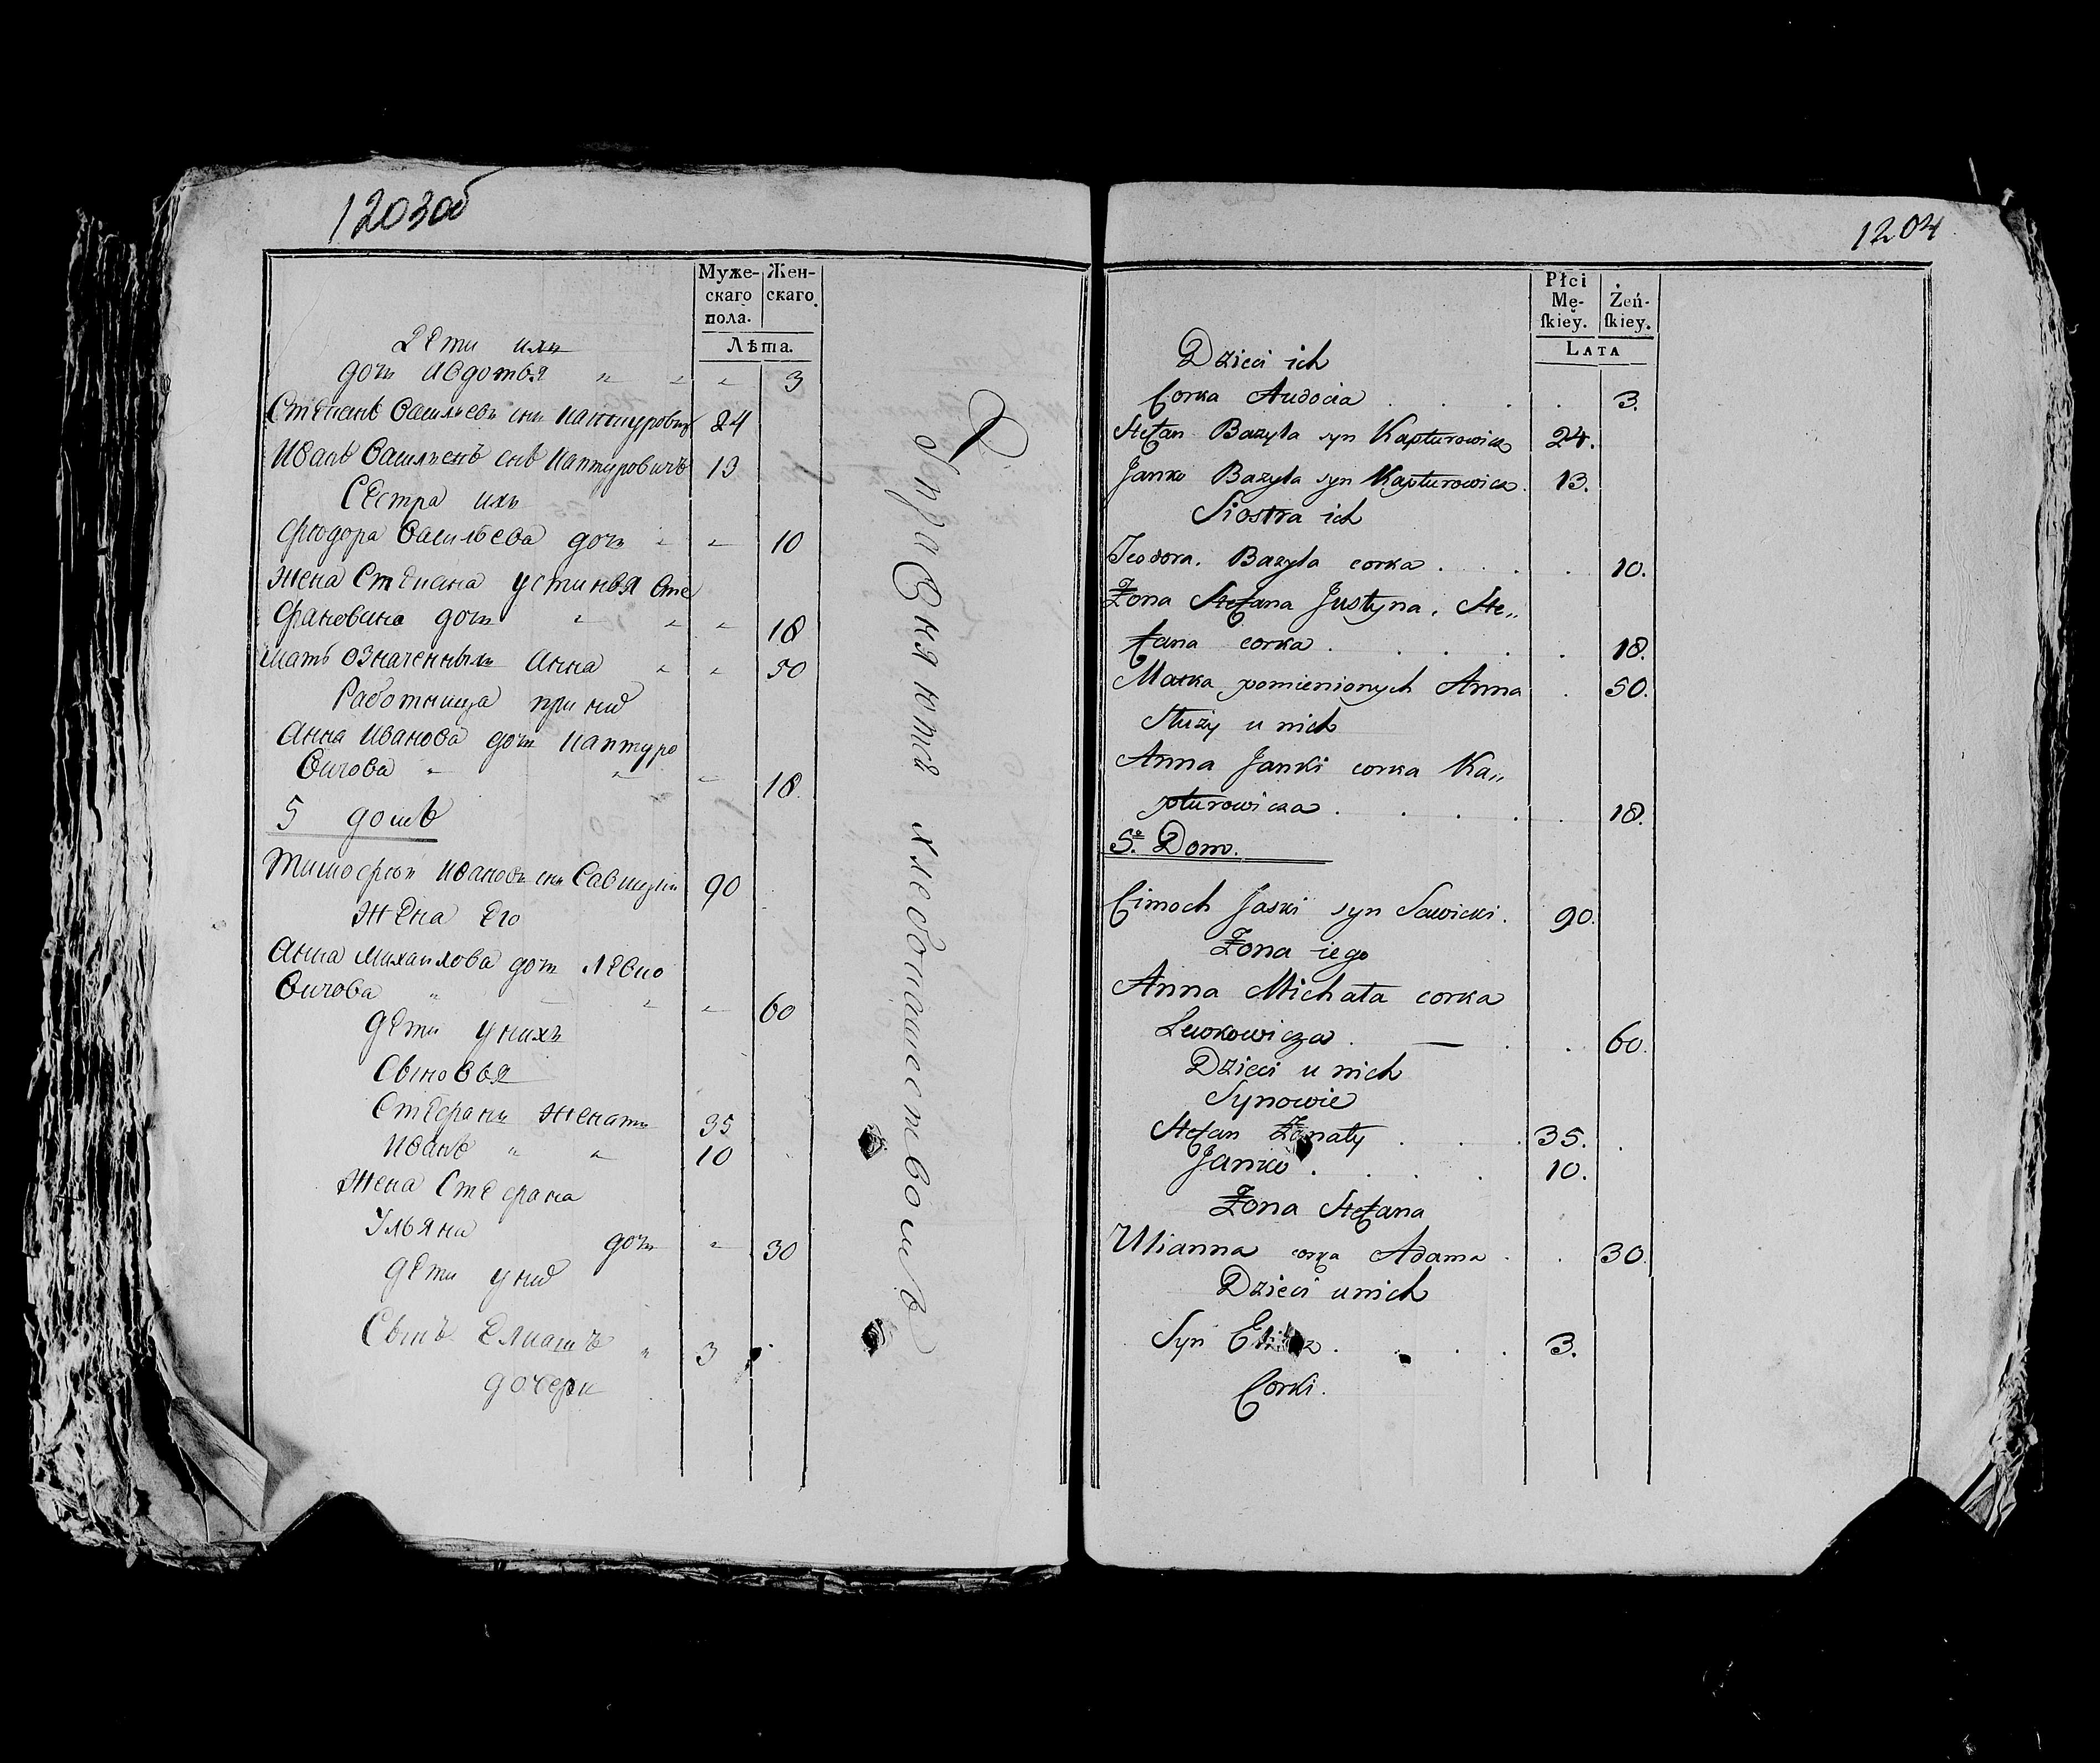 1203об
Муже- Жен-
скаго скаго.
пола.
Лѣта.
Дети ихъ
дочь Авдотья " " " 3
Степанъ Васильевъ снъ Каптуровичъ 24
Иванъ Васильевъ снъ Каптуровичъ 13
Сестра ихъ
Фюдора Васильева дочь " " 10
Жена Степана Устинья Сте
фановина дочь " " " 18
Мать означеннымъ Анна " " 50
Работница при ній
Анна Иванова дочь Каптуро
вичова " " " 18.
5 домъ
Тимофѣй Ивановъ снъ Савицкій 90
Жена Его
Анна Михаилова дочь Левко
вичова " " " 60
дети у нихъ
Сыновья
Стефанъ Женатъ 35
Иванъ " " 10
Жена Стефана
Ульяна дочь " 30
дети у ній
Сынъ Елиашъ " 3
дочери
Упражняются хлебопашествомъ
1204
Płci
Mę- Żeń-
skiey. skiey.
LATA
Dzieci ich
Corka Audocia . . . . 3.
Stefan Bazyla syn Kapturowicz 24.
Janko Bazyla syn Kapturowicz. 13.
Siostra ich
Teodora. Bazyla corka . . . . 10.
Żona Stefana Justyna. Ste„
fana corka . . . . . 18.
Matka pomienionych Anna . 50.
Służy u nich
Anna Janki corka Ka„
pturowicza . . . . . 18.
5º Dom.
Cimoch Jaski syn Sawicki. 90.
Żona iego
Anna Michała corka
Lewkowicza . — . . 60.
Dzieci u nich
Synowie
Stefan Żonaty . . . 35.
Janko . . . . 10.
Żona Stefana
Ulianna corka Adama . . 30.
Dzieci u nich
Syn . . . . 3.
Corki.